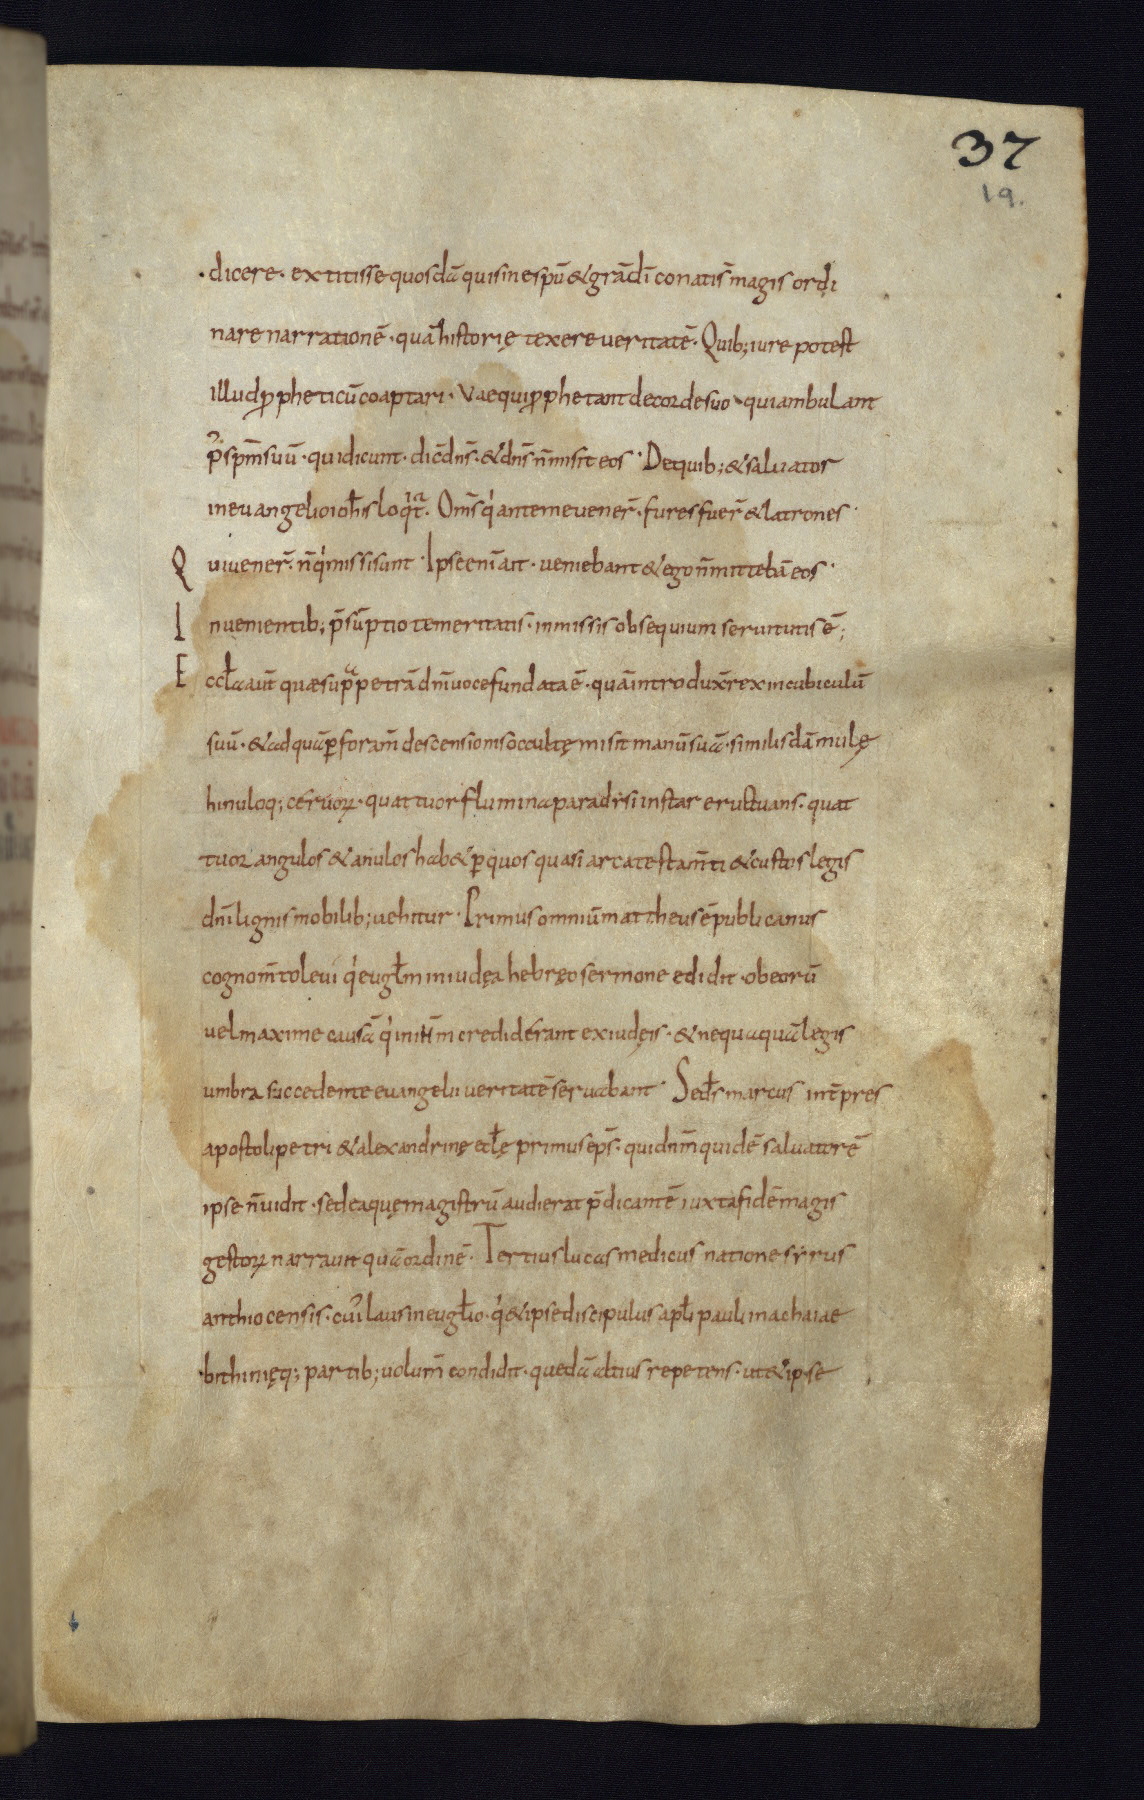 37
19.
dicere. extitisse quosdā qui sine spū & grā dī conatis̄ magis ordi
nare narrationē. quā historię texere veritatē. Quib; iure potest
illud ꝓpheticū coaptari. Vae qui ꝓphetant de corde suo. qui ambulant
p̄ sp̄m suū. qui dicunt. dic̄ dn̄s. & dn̄s n̄ misit eos. De quib; & salvator
in evangelio ioh̄is loqͥt̄. Om̄s qͥ ante me vener̄. fures fuer̄ & latrones
Qui vener̄. n̄ qͥ missi sunt. Ipse enī ait. veniebant & ego n̄ mittebā eos.
In venientib; p̄sūptio temeritatis. in missis obsequium servitutis ē;
Eccl̄a aut̄ quae supͣ petrā dn̄i voce fundata ē. quā introdux̄ rex in cubiculū
suū. & ad quā ꝑ foram̄ descensionis occultę misit manū suā. similis dāmulę
hinuloq; cervoꝝ. quattuor flumina paradysi instar eructuans. quat
tuor angulos & anulos hab& ꝑ quos quasi arca testam̄ti & custos legis
dn̄i lignis mobilib; vehitur. Primus omniū mattheus ē publicanus
cognom̄to levi qͥ eugl̄m in iudęa hebręo sermone edidit. ob eorū
vel maxime causā qͥ in ih̄m crediderant ex iudęis. & nequaquā legis
umbra succedente evangelii veritatē servabant. Sed̄s marcus int̄pres
apostoli petri & alexandrinę eccl̄ę primus ep̄s. qui dn̄m quidē salvatorē
ipse n̄ vidit. sed ea quę magistrū audierat p̄dicantē iuxta fidē magis
gestoꝝ narravit quā ordinē. Tertius lucas medicus natione syrus
anthiocensis. cuiꝰ laus in eugl̄io. qͥ & ipse discipulus apl̄i pauli in achaiae
bithinięq; partib; volum̄ condidit. quedā altius repetens. ut & ipse